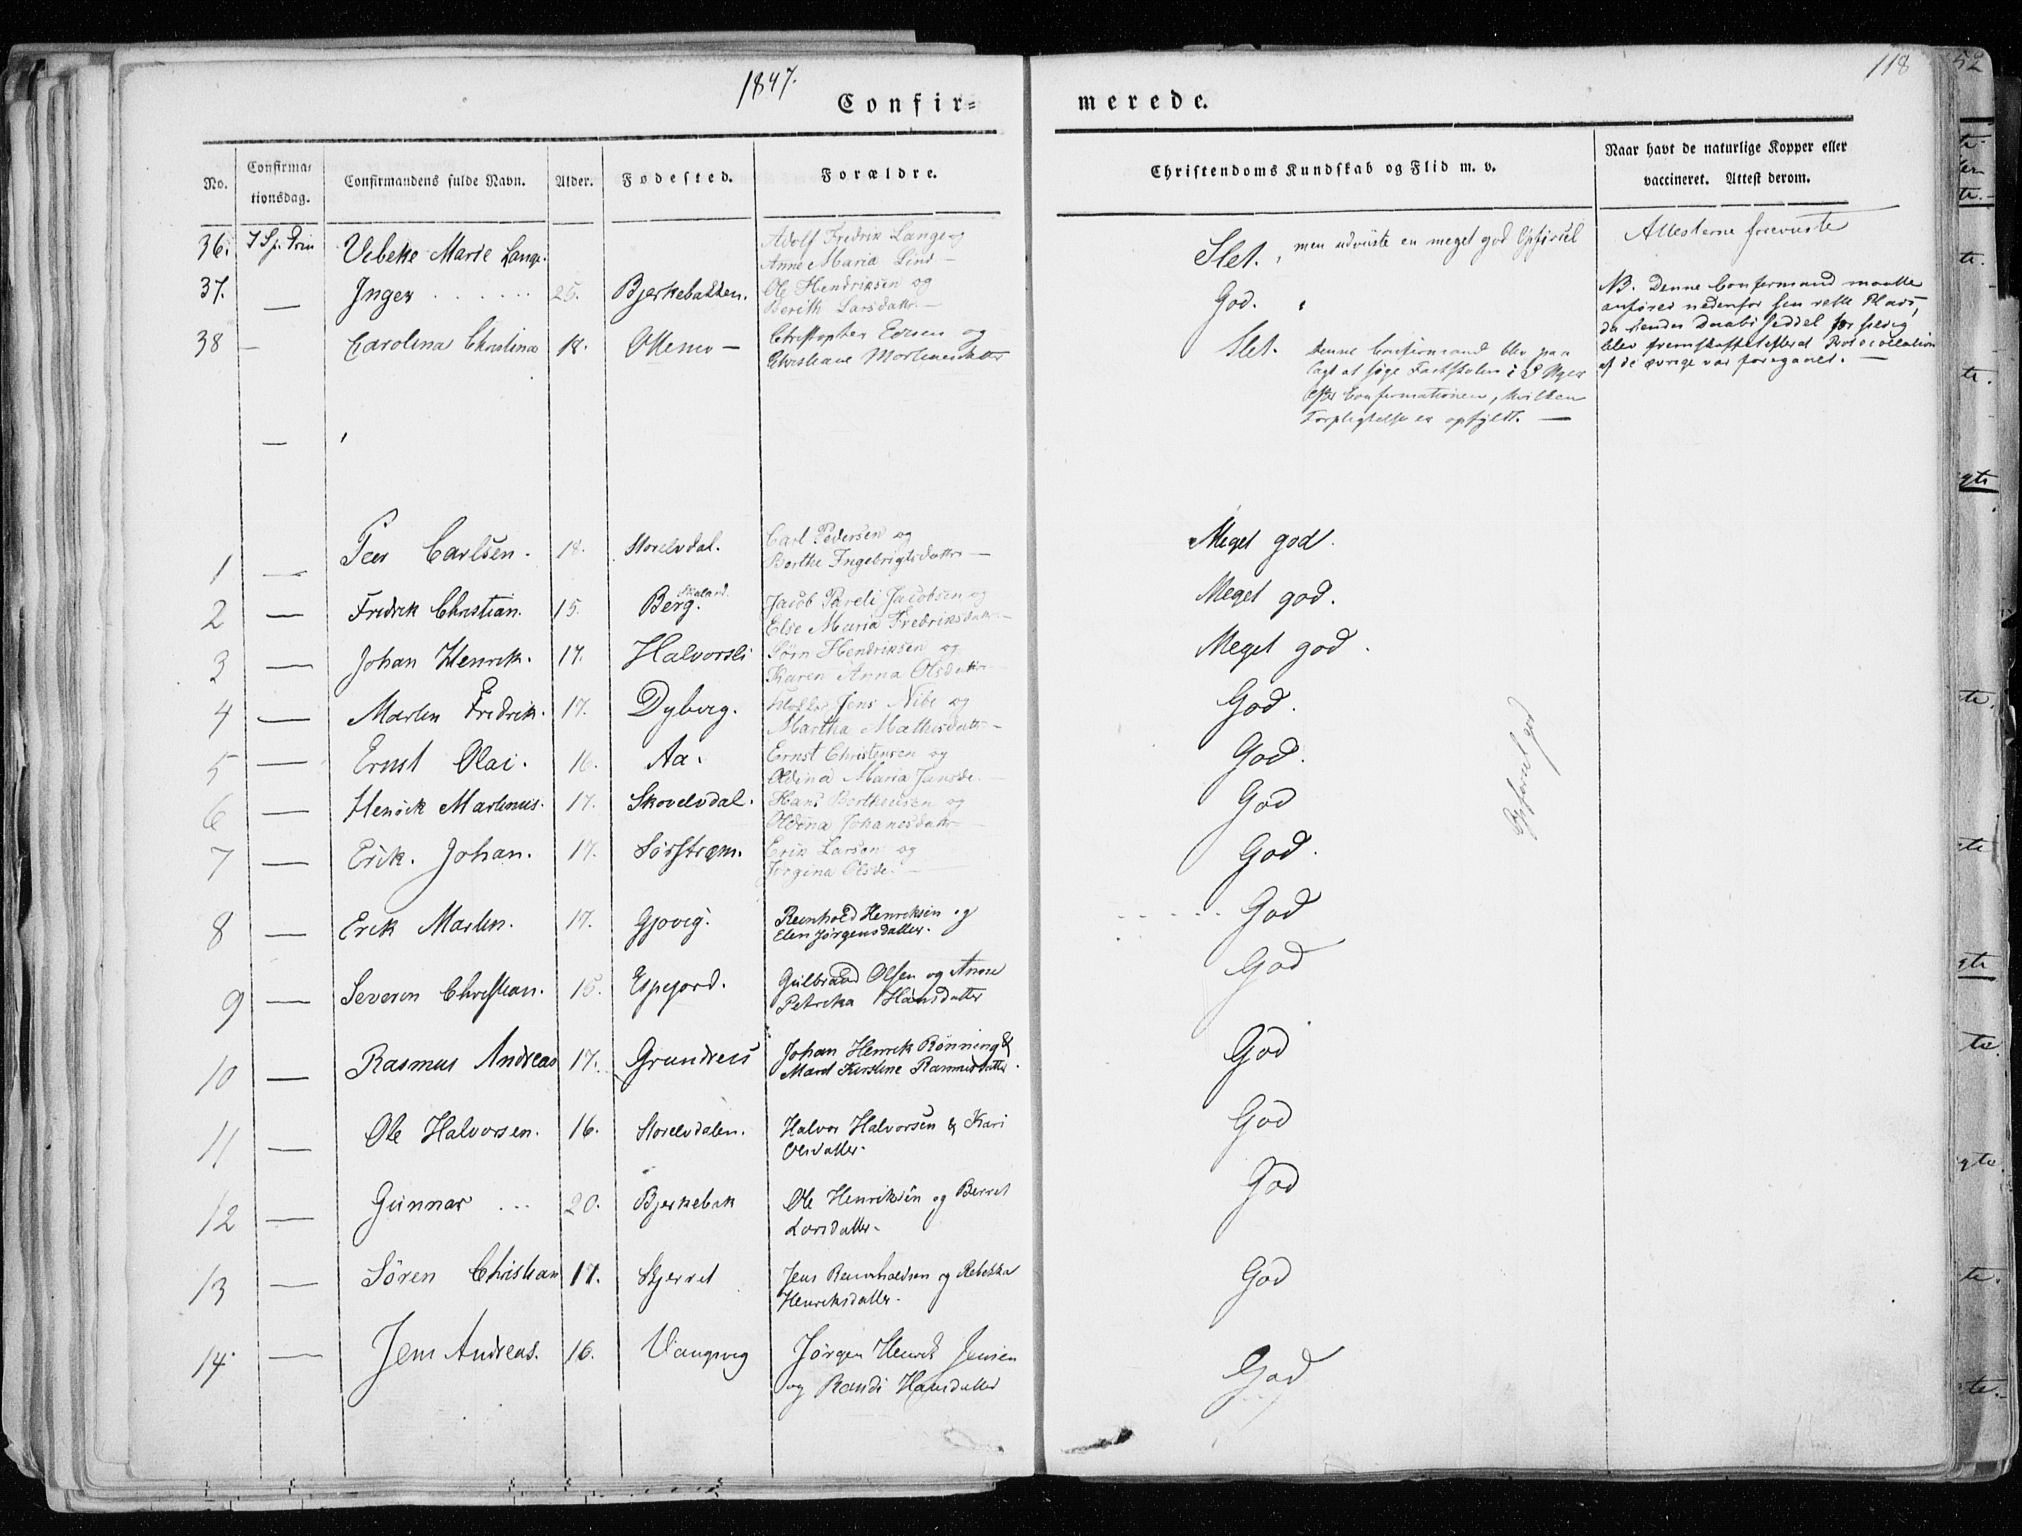 1847.
118
Confir=
merede.
No.
Confirma=
tionsdag.
Confirmandens fulde Navn.
Alder.
Fødested.
Forældre.
Christendoms Kundskab og Flid m. v.
Naar havt de naturlige Kopper eller
vaccineret. Attest derom.
36. Vibeke Marie Lange. Adolf Fredrik Lange og
Anne Maria Lind —
Slet., men udviiste en meget god Opførsel
Attesterne foreviiste
37. — Inger . . . . . . 25. Bjerkebakken. Ole Hendriksen og
Berith Larsdattr. —
God.
NB. Denne Confirmand maatte
anføres nedenfor sin rette Plads,
da hendes Daabsseddel for sildig
blev fremskaffet efterat
af de øvrige var foregaaet. —
38 — Carolina Christina 18. Christopher og
Christiane Mortensdatter
Slet. Denne Confirmand blev paa
lagt at søge Fastskolen i 8 Uger
efter Confirmationen, hvilken
Forpligtelse er opfyldt. —
—
1 — Peer Carlsen. 18. Storelvdal. Carl Pedersen og
Berthe Ingebrigtsdattr — Meget god.
2 — Fredrik Christian. 15. Berg. Jacob Pareli Jacobsen og
Else Maria Fredriksdattr — Meget god.
3 — Johan Henrik. 17. Halvorsli Sørn Hendriksen og
Karen Anna Olsdattr Meget god.
4 — Marten Fredrik. 17. Dybvig. Jens Nibe og
Martha Mathisdattr — God.
5 — Ernst Olai. 16. Aa. Ernst Christensen og
Oldina Maria Jansdr. — God.
6 — Henrik Martinus. 17. Skovelvdal. Hans Bertheusen og
Oldina Johanesdattr — God
7 — Erik Johan. 17. Sørstrøm. Erik Larsen og
Jørgina Olsdr. — God.
Opførsel god
8 — Erik Marten. 17. Gjovig. Reinhold Henriksen og
Elen Jørgensdatter. God
9 — Severin Christian. 15. Espejord. Gulbrand Olsen og Anne
Petrika Hansdatter God
10 — Rasmus Andreas 17. Grundreis Johan Henrik Rønning &
Maret Kirstine Rasmusdatter. God
11 — Ole Halvorsen. 16. Storelvdalen. Halvor Halvorsen & Kari
Olsdatter. God
12 — Gunnar ... 20. Bjerkebak Ole Henriksen og Berret
Larsdatter. God
13 — Søren Christian 17. Skjerret Jens Reinholdsen og Rebekka
Henriksdatter. God
14. — Jens Andreas. 16. Vangsvig Jørgen Henrik Jensen
og Randi Hansdatter God